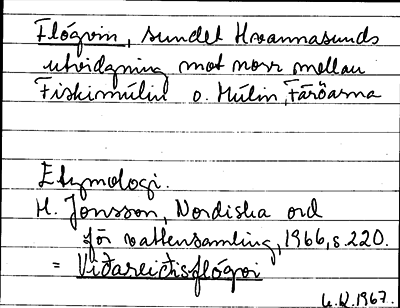 Flógvin, sundet Hvannasunds
utvidgning mot norr mellan
Fiskimúlin o. Múlin, Färöarna
Etymologi.
H. Jonsson, Nordiska ord
för vattensamling, 1966, s. 220.
= Viðareiðisflógvi
1967.